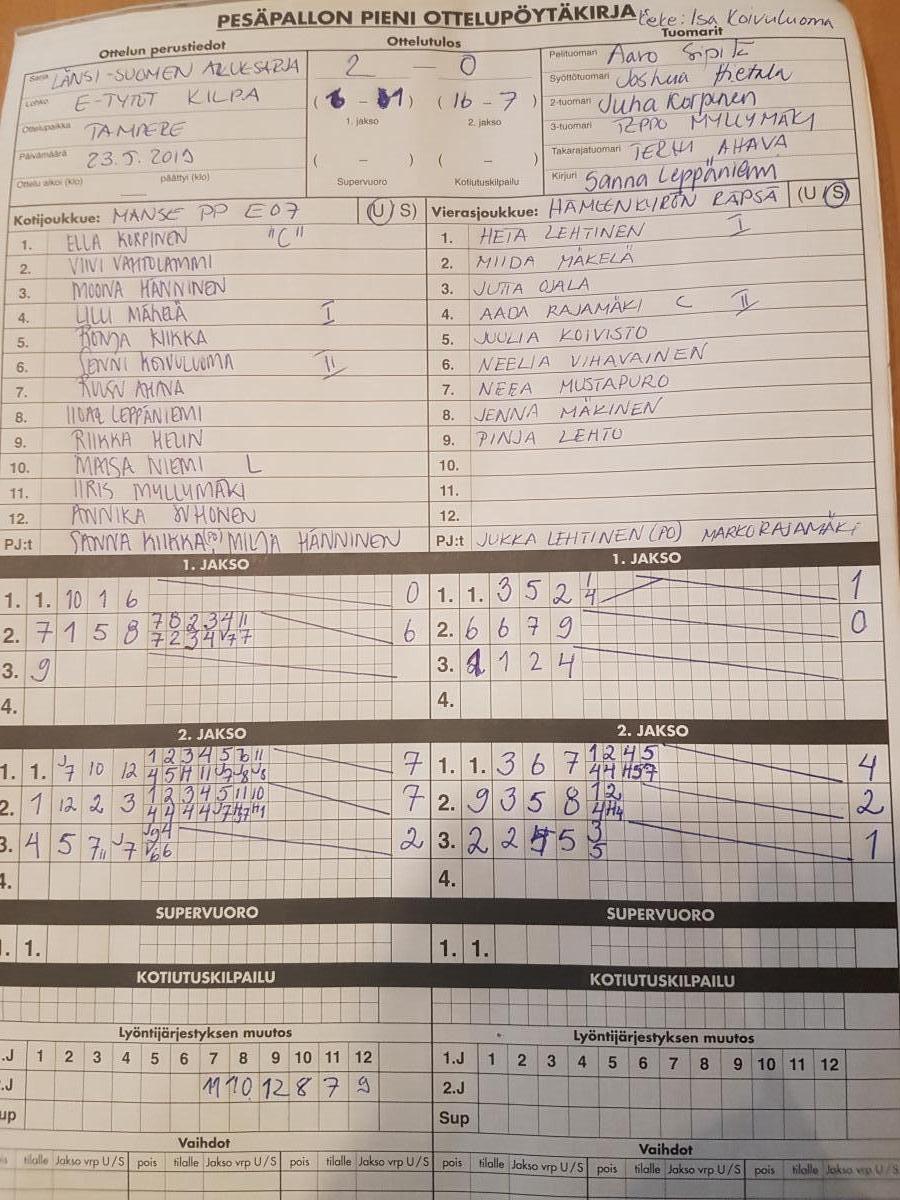 PESÄPALLON PIENI OTTELUPÖYTÄKIRJA
Teke: Isa Koivuluoma
Ottelun perustiedot
Sarja LÄNSI-SUOMEN ALUESARJA
Lohko E-TYTÖT KILPA
Ottelupaikka TAMPERE
Päivämäärä 23.5.2019
Ottelu alkoi (klo) päättyi (klo)
Ottelutulos
2 - 0
(6 - 1) (16 - 7)
1. jakso 2. jakso
( - ) ( - )
Supervuoro Kotiutuskilpailu
Tuomarit
Pelituomari Aaro Sipilä
Syöttötuomari Joshua Hietala
2-tuomari Juha Korpinen
3-tuomari TEPPO MYLLYMÄKI
Takarajatuomari TERHI AHAVA
Kirjuri Sanna Leppäniemi
Kotijoukkue: MANSE PP E07 (U S)
1. ELLA KORPINEN "C"
2. VIIVI VAHTOLAMMI
3. MOONA HÄNNINEN
4. LILLI MÄKELÄ I
5. RONJA KIIKKA
6. SENNI KOIVULUOMA II
7. RUUSU AHAVA
8. IIDA LEPPÄNIEMI
9. RIIKKA HELIN
10. MAISA NIEMI L
11. IIRIS MYLLYMÄKI
12. ANNIKA JUHONEN
PJ:t SANNA KIIKKA (PO), MILJA HÄNNINEN
Vierasjoukkue: HÄMEENKYRÖN RÄPSÄ (U S)
1. HETA LEHTINEN I
2. MIIDA MÄKELÄ
3. JUTTA OJALA
4. AADA RAJAMÄKI C II
5. JUULIA KOIVISTO
6. NEELIA VIHAVAINEN
7. NEEA MUSTAPURO
8. JENNA MÄKINEN
9. PINJA LEHTO
10.
11.
12.
PJ:t JUKKA LEHTINEN (PO) MARKO RAJAMÄKI
1. JAKSO
1. 1. 10 1 6 0
2. 7 1 5 8 7 8 2 3 4 11 6
7 2 3 4 7 7
3. 9
4.
1. JAKSO
1. 1. 3 5 2 1 1
4
2. 6 6 7 9 0
3. 1 1 2 4
4.
2. JAKSO
1. 1. J7 10 12 1 2 3 4 5 7 6 11 7
2. 1 12 2 3 1 2 3 4 5 11 10 7
3. 4 5 7 J7 2
4.
2. JAKSO
1. 1. 3 6 7 1 2 4 5 4
4 4 H5 7
2. 9 3 5 8 1 2 2
4 H4
3. 2 2 4 5 3 1
5
4.
SUPERVUORO
1. 1.
SUPERVUORO
1. 1.
KOTIUTUSKILPAILU
KOTIUTUSKILPAILU
Lyöntijärjestyksen muutos
.J 1 2 3 4 5 6 7 8 9 10 11 12
.J 11 10 12 8 7 9
up
Lyöntijärjestyksen muutos
1.J 1 2 3 4 5 6 7 8 9 10 11 12
2.J
Sup
Vaihdot
tilalle Jakso vrp U/S pois tilalle Jakso vrp U/S pois tilalle Jakso vrp U/S
Vaihdot
pois tilalle Jakso vrp U/S pois tilalle Jakso vrp U/S pois tilalle Jakso vrp U/S